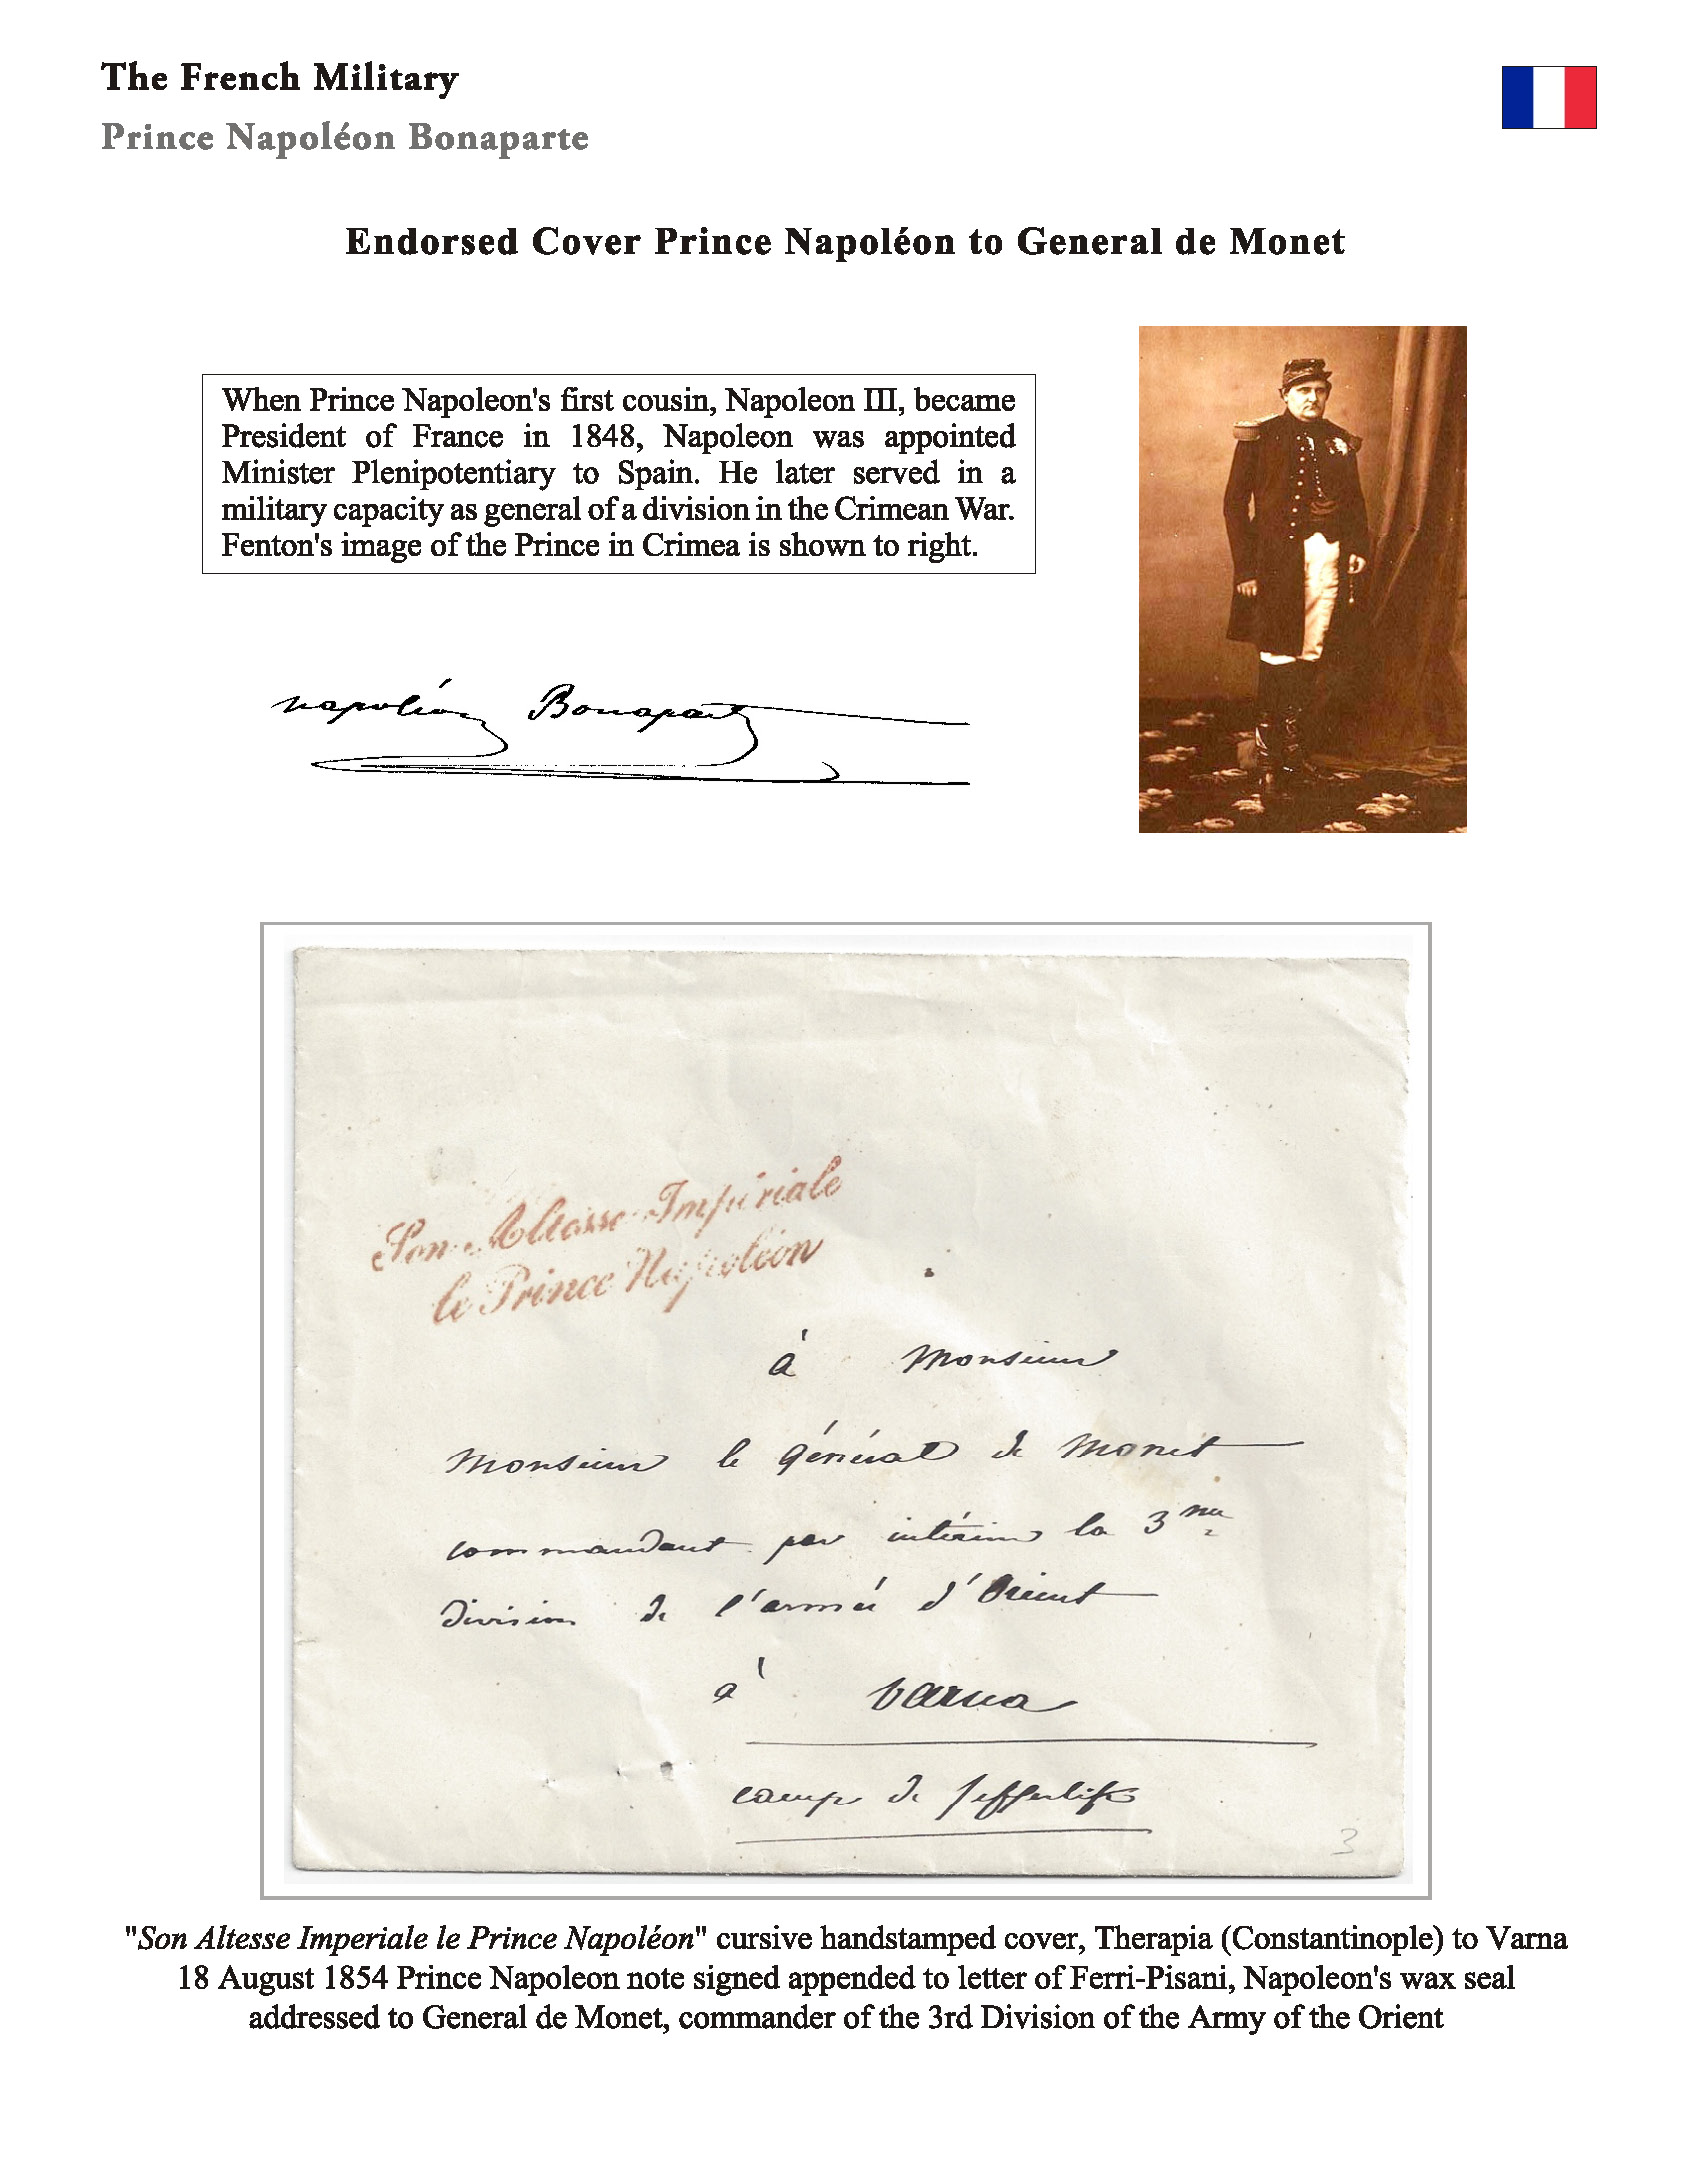 The French Military
Prince Napoléon Bonaparte
Endorsed Cover Prince Napoléon to General de Monet
When Prince Napoleon's first cousin, Napoleon III, became
President of France in 1848, Napoleon was appointed
Minister Plenipotentiary to Spain. He later served in a
military capacity as general of a division in the Crimean War.
Fenton's image of the Prince in Crimea is shown to right.
napoléon Bonaparte
Son Altesse Impériale
le Prince Napoléon
à Monsieur
Monsieur le général de Monet
commandant par intérim la 3me
Division de l'armée d'Orient
à Varna
camp de
3
"Son Altesse Imperiale le Prince Napoléon" cursive handstamped cover, Therapia (Constantinople) to Varna
18 August 1854 Prince Napoleon note signed appended to letter of Ferri-Pisani, Napoleon's wax seal
addressed to General de Monet, commander of the 3rd Division of the Army of the Orient